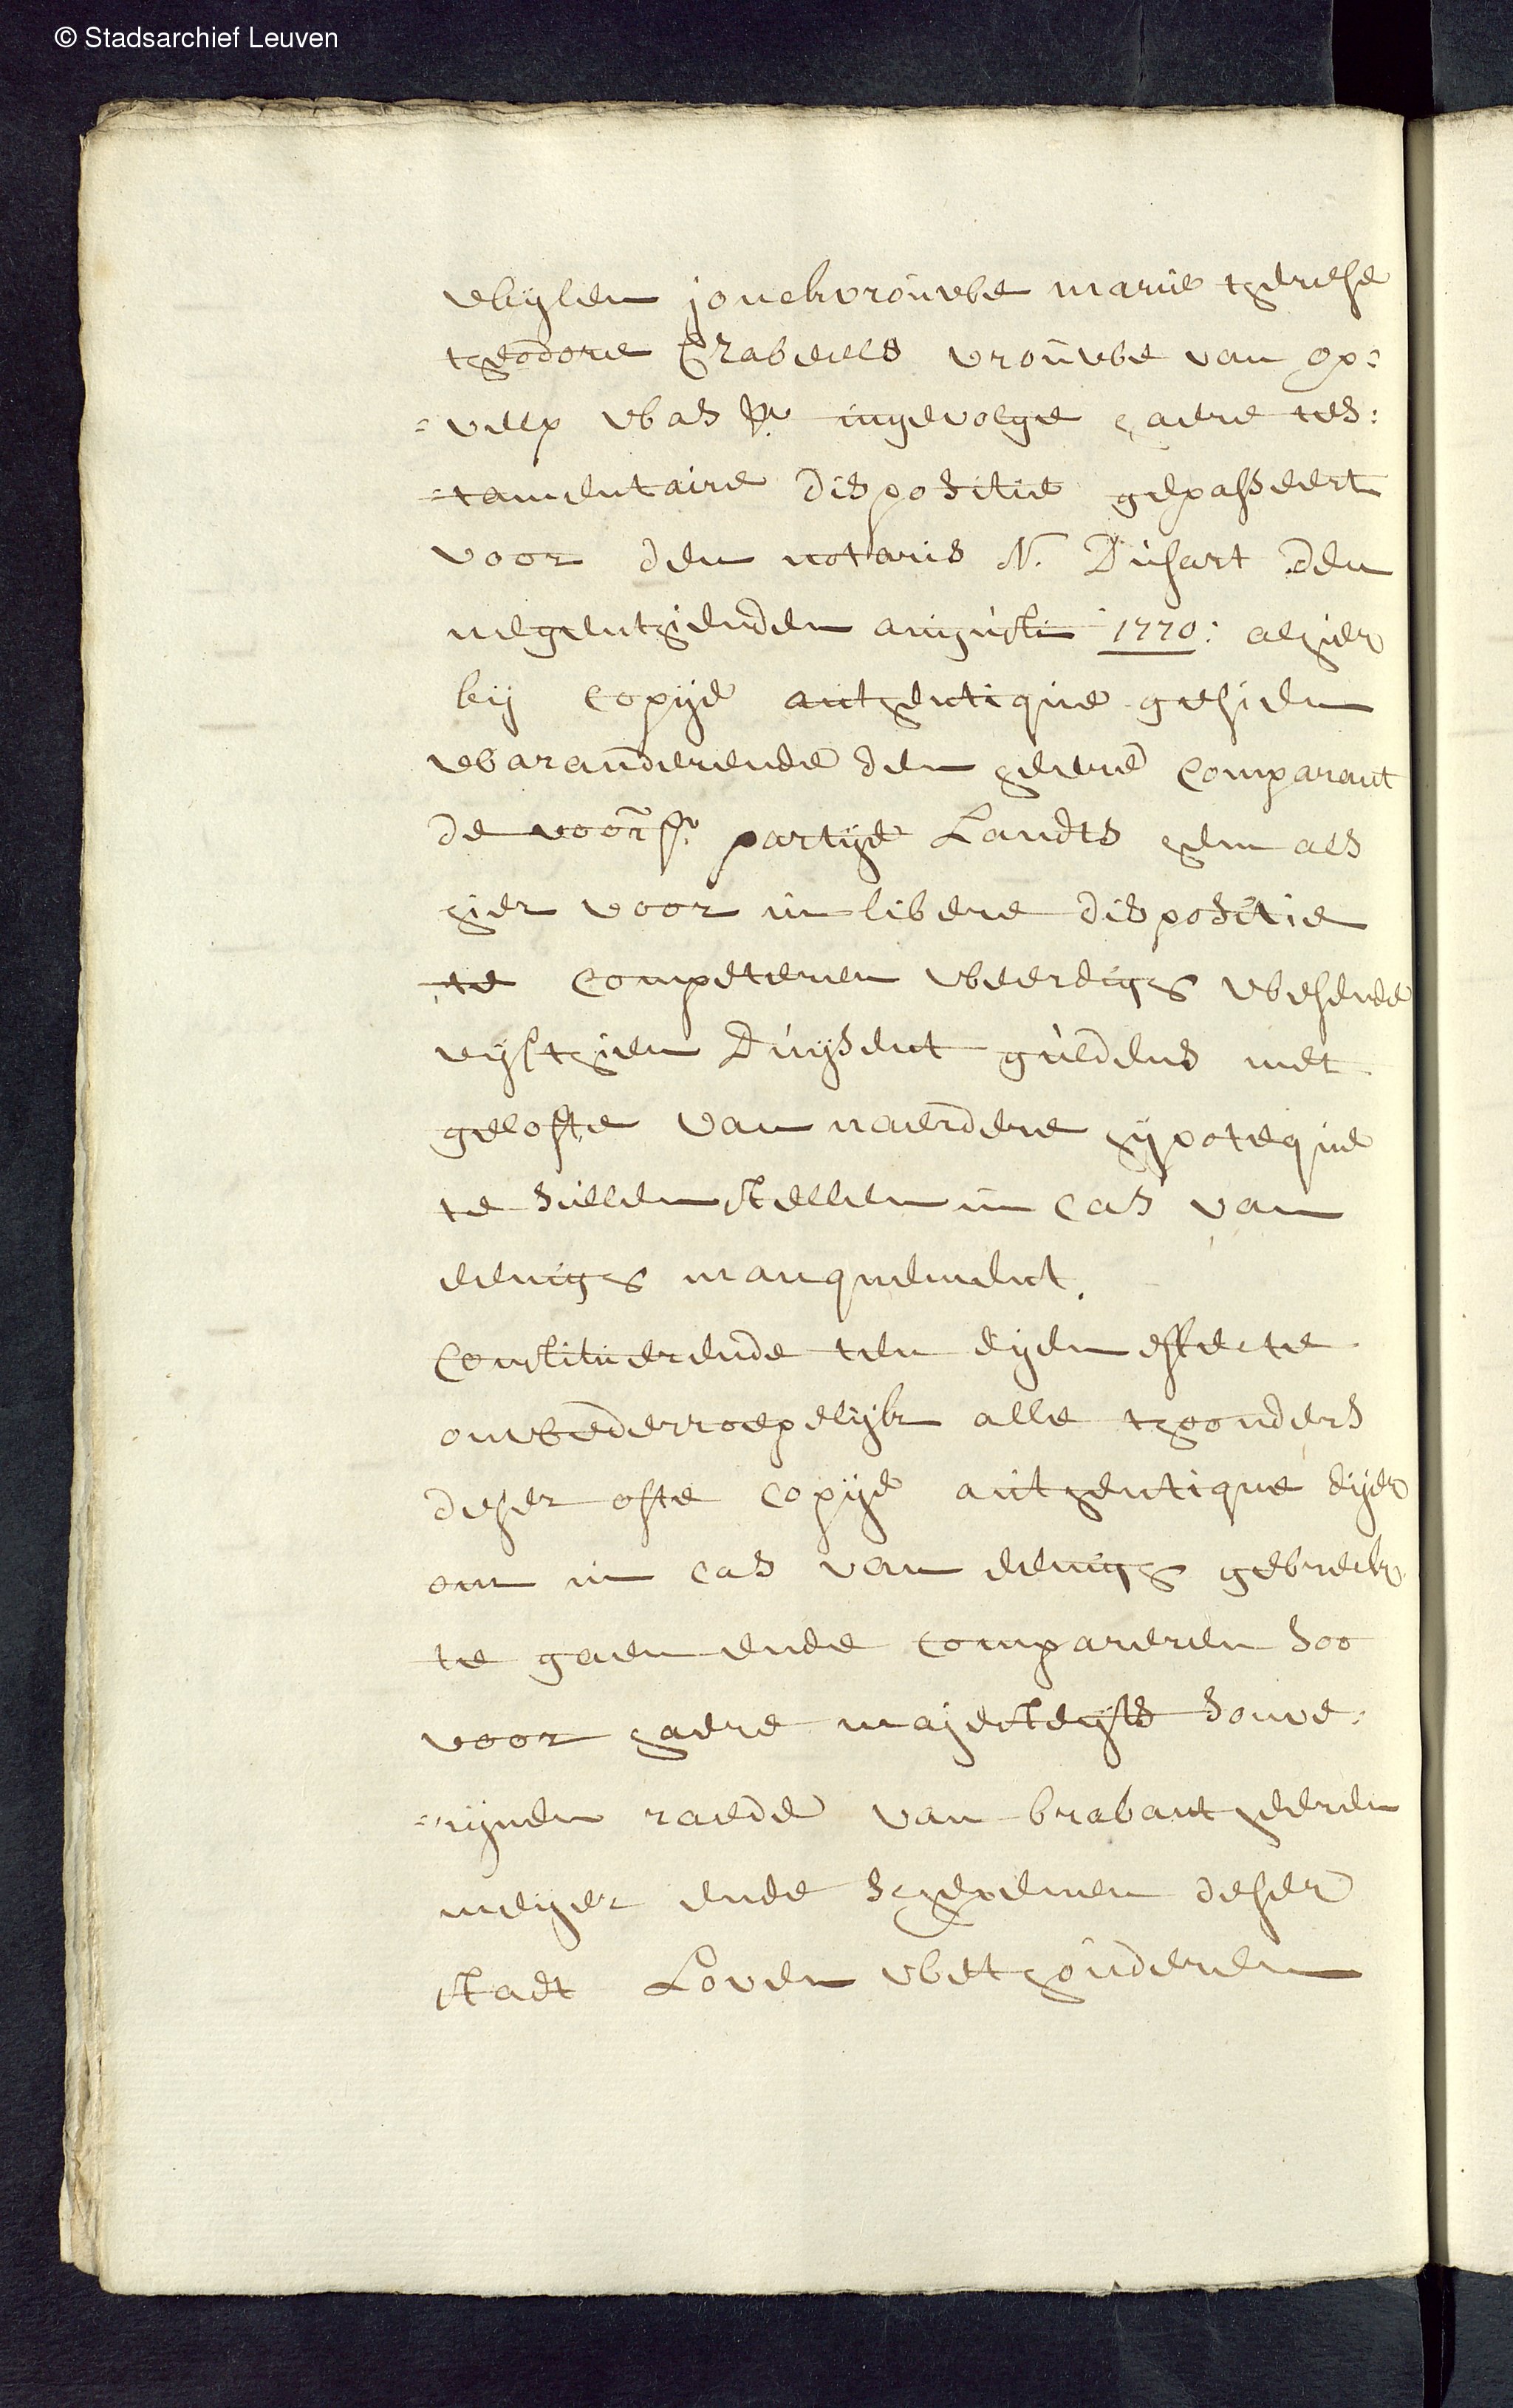 © Stadsarchief Leuven
wijlen jonckvrouwe marie therese
theodore Crabeels vrouwe van op:
=velp was pr ingevolge haere tes:
=tamentaire dispositie gepasseert
voor den notaris N. Dusart den
negenthienden augusti 1770: alhier
bij copije authentique gesien
waranderende den heere comparant
de voorsr. partije Landts hem als
hier voor in libere dispositie
te competeren weerdigh wesende
vijfthien Duijsent guldens met
gelofte van naerdere hijpoteque
te sullen stellen in cas van
eenigh manquement.
Constituerende ten dijen effecte
onwederroepelijk alle thoonders
deser ofte copije authentique dijer
om in cas van eenigh gebreck
te gaen ende compareren soo
voor haere majesteijts souve:
=rijnen raede van brabant heeren
meijer ende schepenen deser
stadt Loven wethouderen